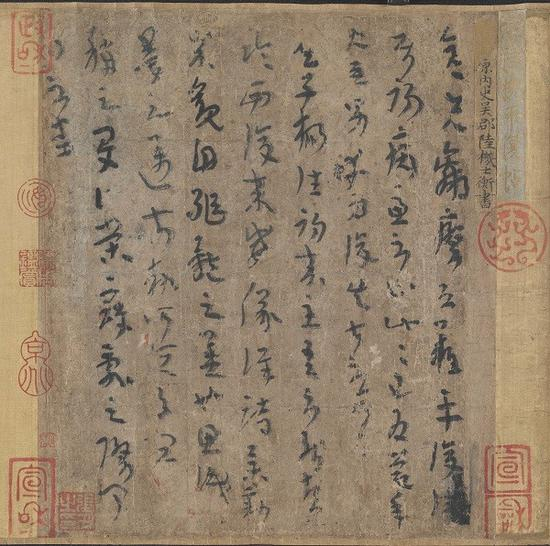 內史吳郡陸機士衡書
彦先羸瘵恐難平復往屬
初病慮不止此此已為慶承
使唯男幸為復失前憂耳
吳子楊往初來主吾不能盡
臨西復來威儀詳跱舉動
成觀自軀體之美也思識
量之邁前執所恒有宜
稱之夏伯榮寇亂之際聞
問不悉
宣和
政和
宣和